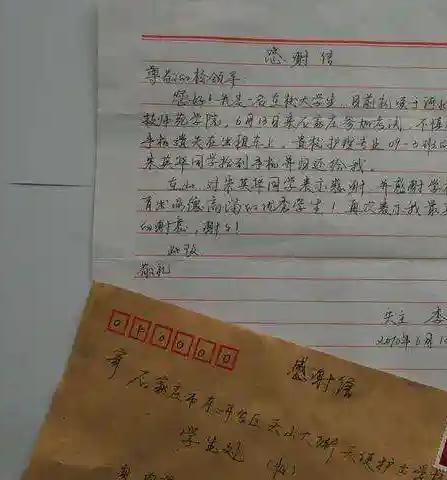 感谢信
尊敬的校领导:
您好!我是一名在校大学生,目前就读于河北
技师范学院,6月13日来石家庄参加考试,不慎
手机遗失在出租车上,贵校护理专业09-3班
朱英华同学拾到手机并归还给我。
在此,对朱英华同学表示感谢,并感谢学
育出品德高尚的优秀学生!再次表示我最
的谢意,谢谢!
此致
敬礼
失主 李
2010年6月1
010000
感谢信
寄 石家庄市 区天山大街天使护士学校
学生处 (收)